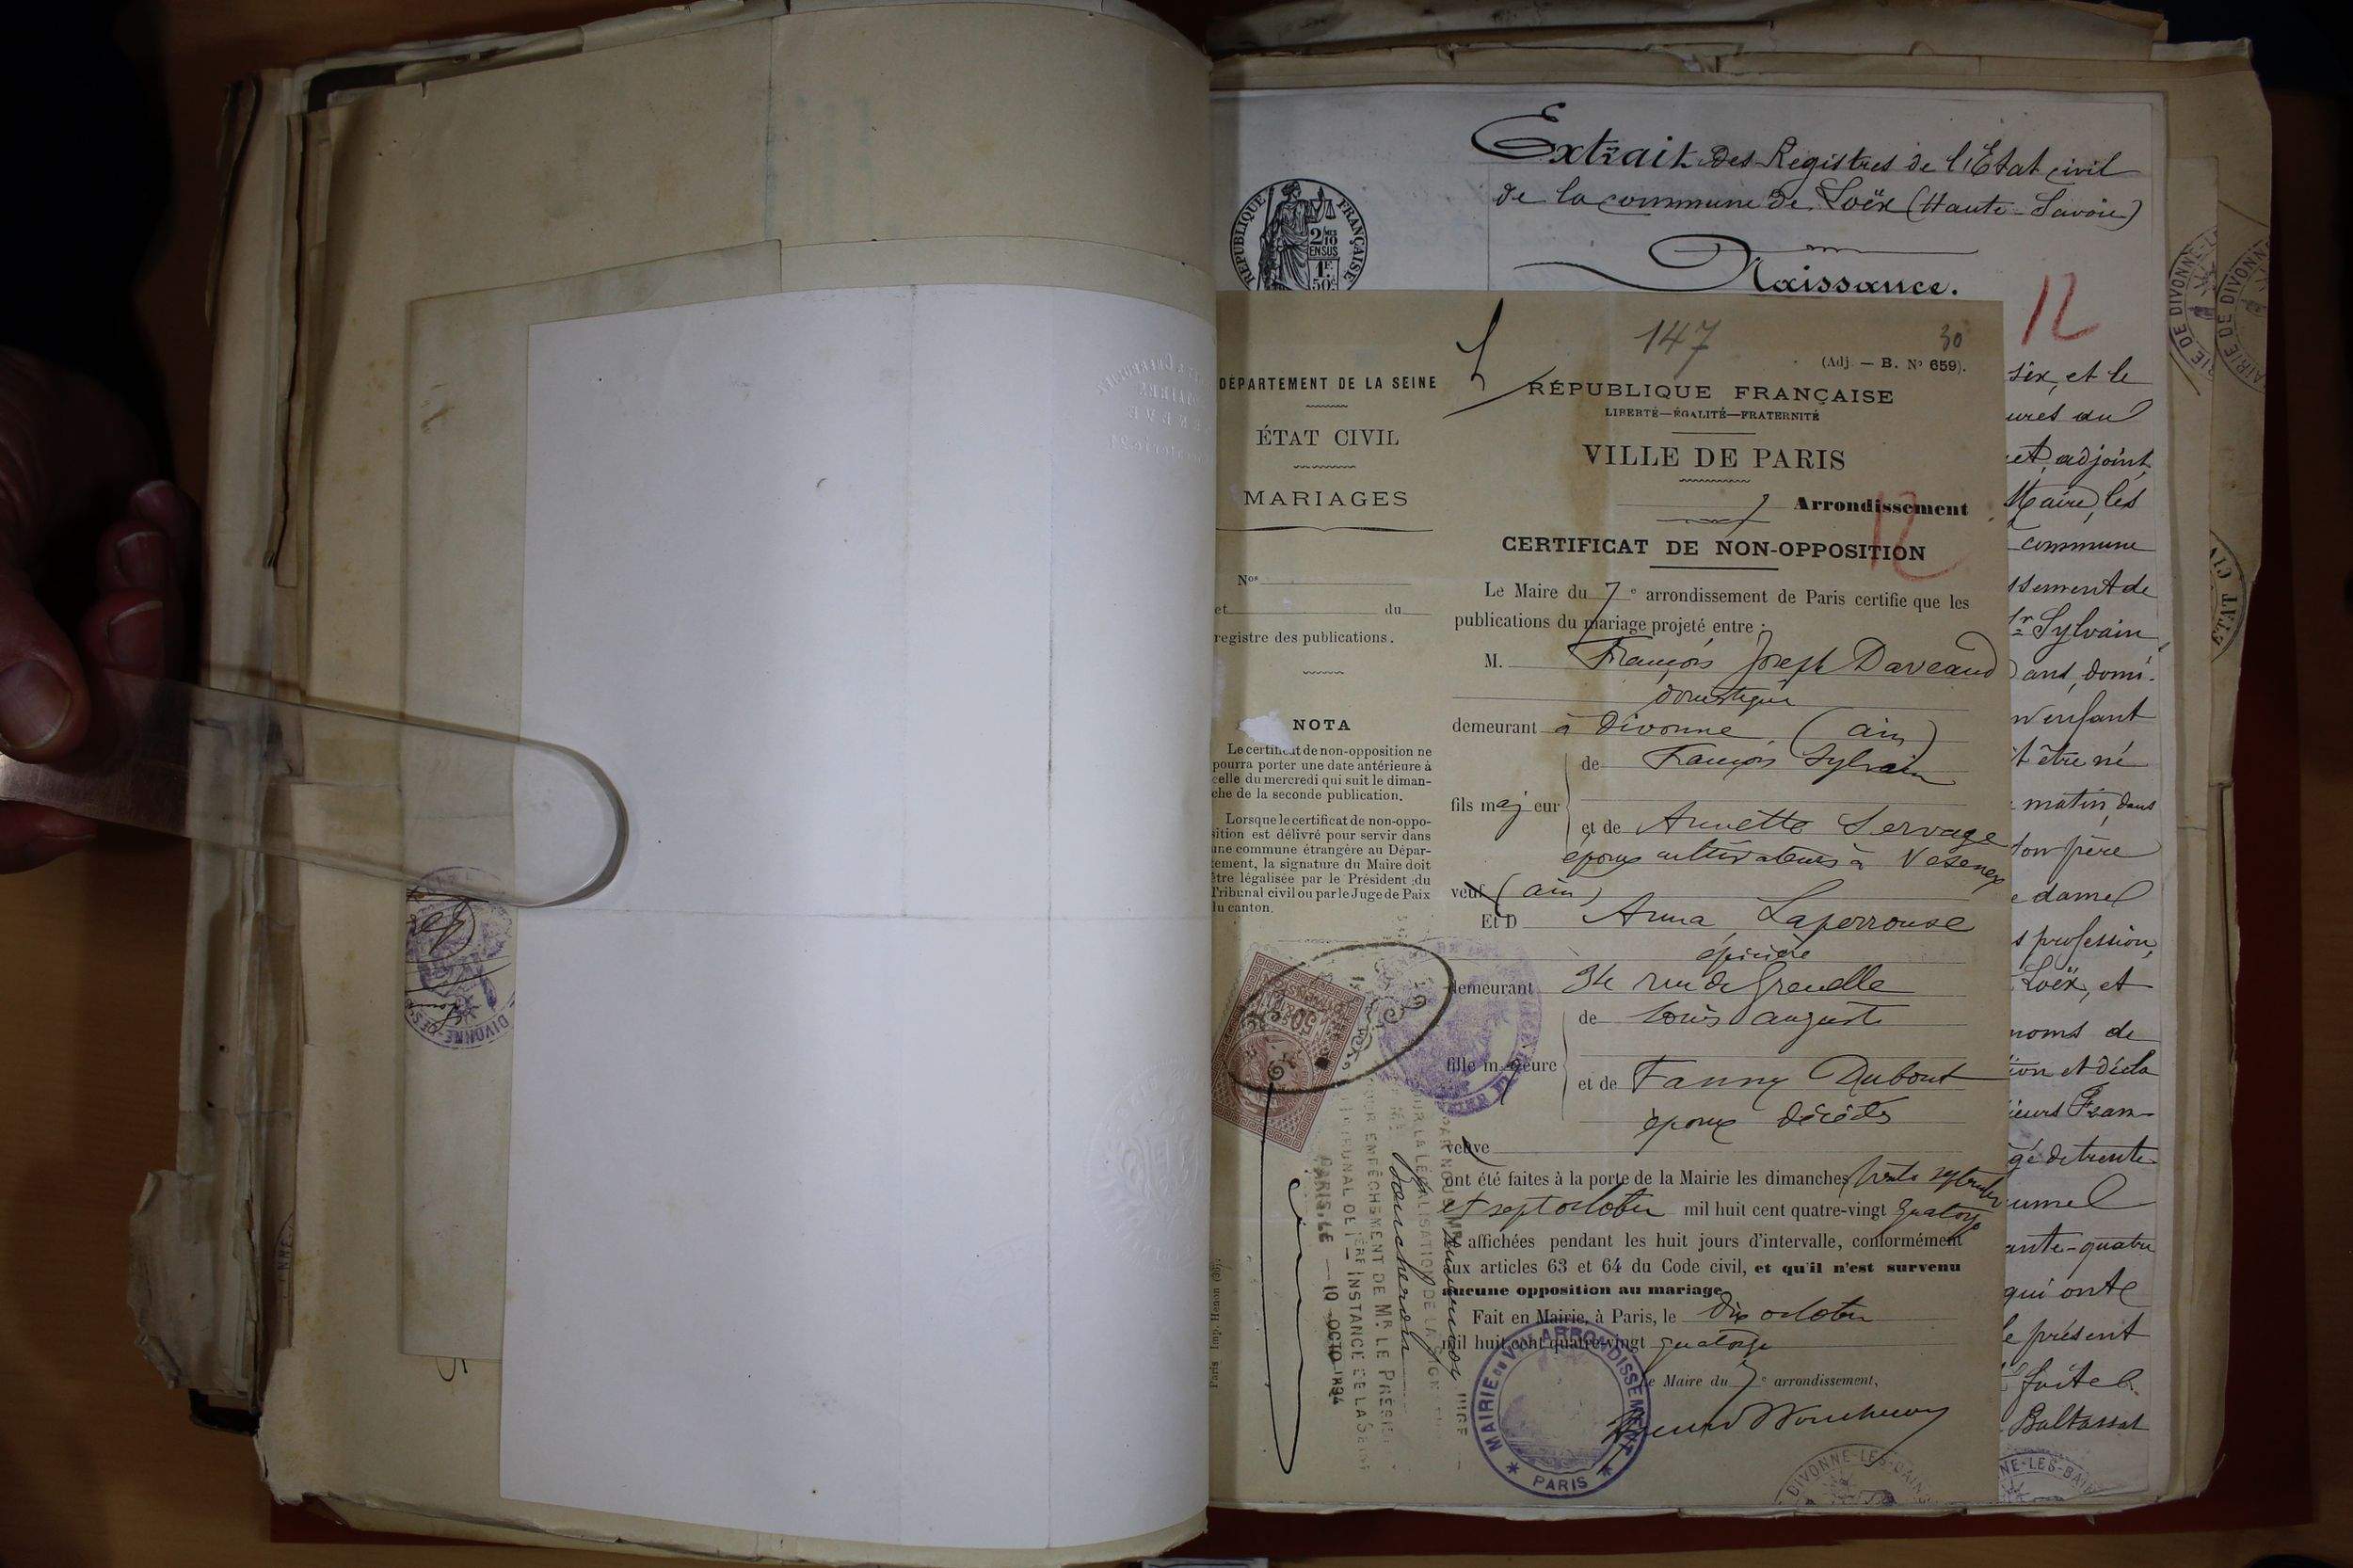 Extrait des Registres de l'Etat civil
de la commune de Loëx (Haute-Savoie)
Naissance.
RÉPUBLIQUE FRANÇAISE
2/10
EN SUS
1F.
50c
12
six, et le
adjoint,
Maire, les
commune
Sylvain
ans, domi-
enfant
être né
matin, dans
son père
profession,
Loëx, et
noms de
Fran-
gé de trente
ante-quatre
qui ont
le présent
Baltassat
147
30
(Adj. — B. No 659).
DÉPARTEMENT DE LA SEINE
ÉTAT CIVIL
MARIAGES
Nos
et du
registre des publications.
NOTA
Le certificat de non-opposition ne
pourra porter une date antérieure à
celle du mercredi qui suit le diman-
che de la seconde publication.
Lorsque le certificat de non-oppo-
sition est délivré pour servir dans
une commune étrangère au Dépar-
tement, la signature du Maire doit
être légalisée par le Président du
Tribunal civil ou par le Juge de Paix
du canton.
Paris Imp. Henon (30).
RÉPUBLIQUE FRANÇAISE
LIBERTÉ—ÉGALITÉ—FRATERNITÉ
VILLE DE PARIS
7 Arrondissement
12
CERTIFICAT DE NON-OPPOSITION
Le Maire du 7e arrondissement de Paris certifie que les
publications du mariage projeté entre :
M. François Joseph Daveaud
domestique
demeurant à Divonne (ain)
de François Sylvain
fils majeur
et de Annette Servage
époux cultivateurs à Vesenex
veuf (ain)
Et D Anna Laperrouse
épicière
demeurant 34 rue de Grenelle
de Louis auguste
fille majeure
et de Fanny Dubout
époux décédés
veuve
ont été faites à la porte de la Mairie les dimanches trente septembre
et sept octobre mil huit cent quatre-vingt quatorze
et affichées pendant les huit jours d'intervalle, conformément
aux articles 63 et 64 du Code civil, et qu'il n'est survenu
aucune opposition au mariage
Fait en Mairie, à Paris, le dix octobre
mil huit cent quatre-vingt quatorze
Le Maire du 7e arrondissement,
MAIRIE DU VIIe ARRONDISSEMENT
* PARIS *
PARIS, LE 10 OCTO 1894
DIVONNE-LES-BAINS